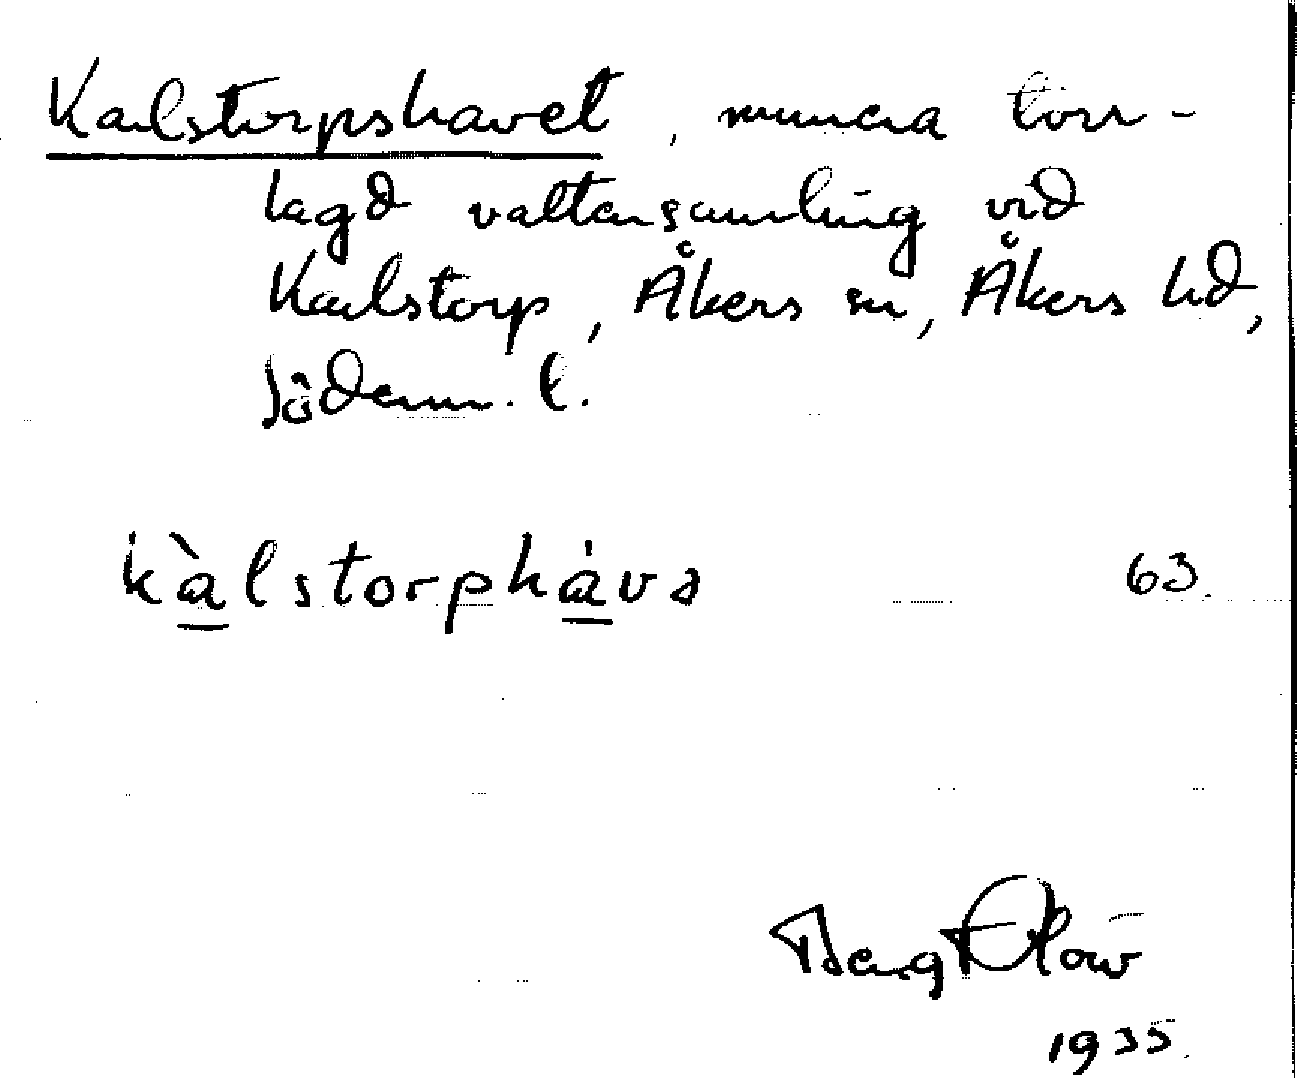 Karlstorpshavet, numera torr-
lagd vattensamling vid
Karlstorp, Åkers sn, Åkers hd,
Söderm. l.
kàlstorphávə 63.
1935.